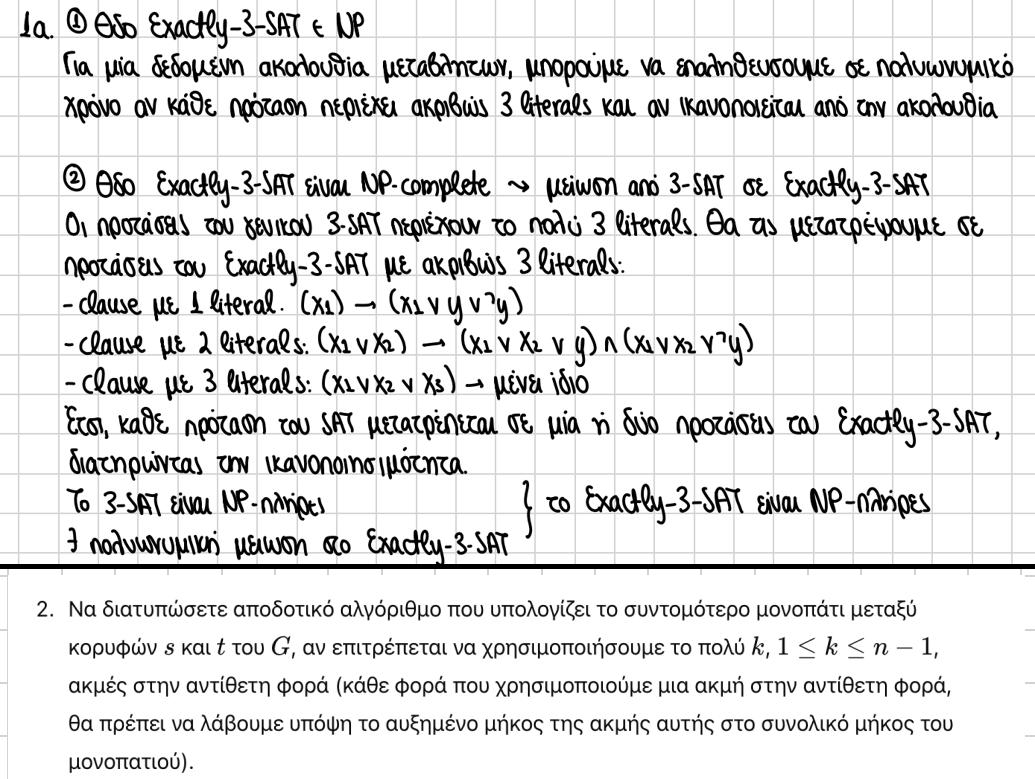 1a. ① Θδο Exactly-3-SAT ∈ NP
Για μία δεδομένη ακολουθία μεταβλητων, μπορούμε να επαληθευσουμε σε πολυωνυμικό
χρόνο αν κάθε πρόταση περιέχει ακριβώς 3 literals και αν ικανοποιείται από την ακολουθία
② Θδο Exactly-3-SAT είναι NP-complete ⤳ μείωση από 3-SAT σε Exactly-3-SAT
Οι προτάσεις του γενικου 3-SAT περιέχουν το πολύ 3 literals. Θα τις μετατρέψουμε σε
προτάσεις του Exactly-3-SAT με ακριβώς 3 literals:
- clause με 1 literal. (x1) → (x1 ∨ y ∨ ¬y)
- clause με 2 literals: (x1 ∨ x2) → (x1 ∨ x2 ∨ y) ∧ (x1 ∨ x2 ∨ ¬y)
- clause με 3 literals: (x1 ∨ x2 ∨ x3) → μένει ίδιο
Έτσι, καθε πρόταση του SAT μετατρέπεται σε μία ή δύο προτάσεις του Exactly-3-SAT,
διατηρώντας την ικανοποιησιμότητα.
Το 3-SAT είναι NP-πλήρες } το Exactly-3-SAT είναι NP-πλήρες
∃ πολυωνυμική μειωση στο Exactly-3-SAT
2. Να διατυπώσετε αποδοτικό αλγόριθμο που υπολογίζει το συντομότερο μονοπάτι μεταξύ
κορυφών s και t του G, αν επιτρέπεται να χρησιμοποιήσουμε το πολύ k, 1 ≤ k ≤ n − 1,
ακμές στην αντίθετη φορά (κάθε φορά που χρησιμοποιούμε μια ακμή στην αντίθετη φορά,
θα πρέπει να λάβουμε υπόψη το αυξημένο μήκος της ακμής αυτής στο συνολικό μήκος του
μονοπατιού).